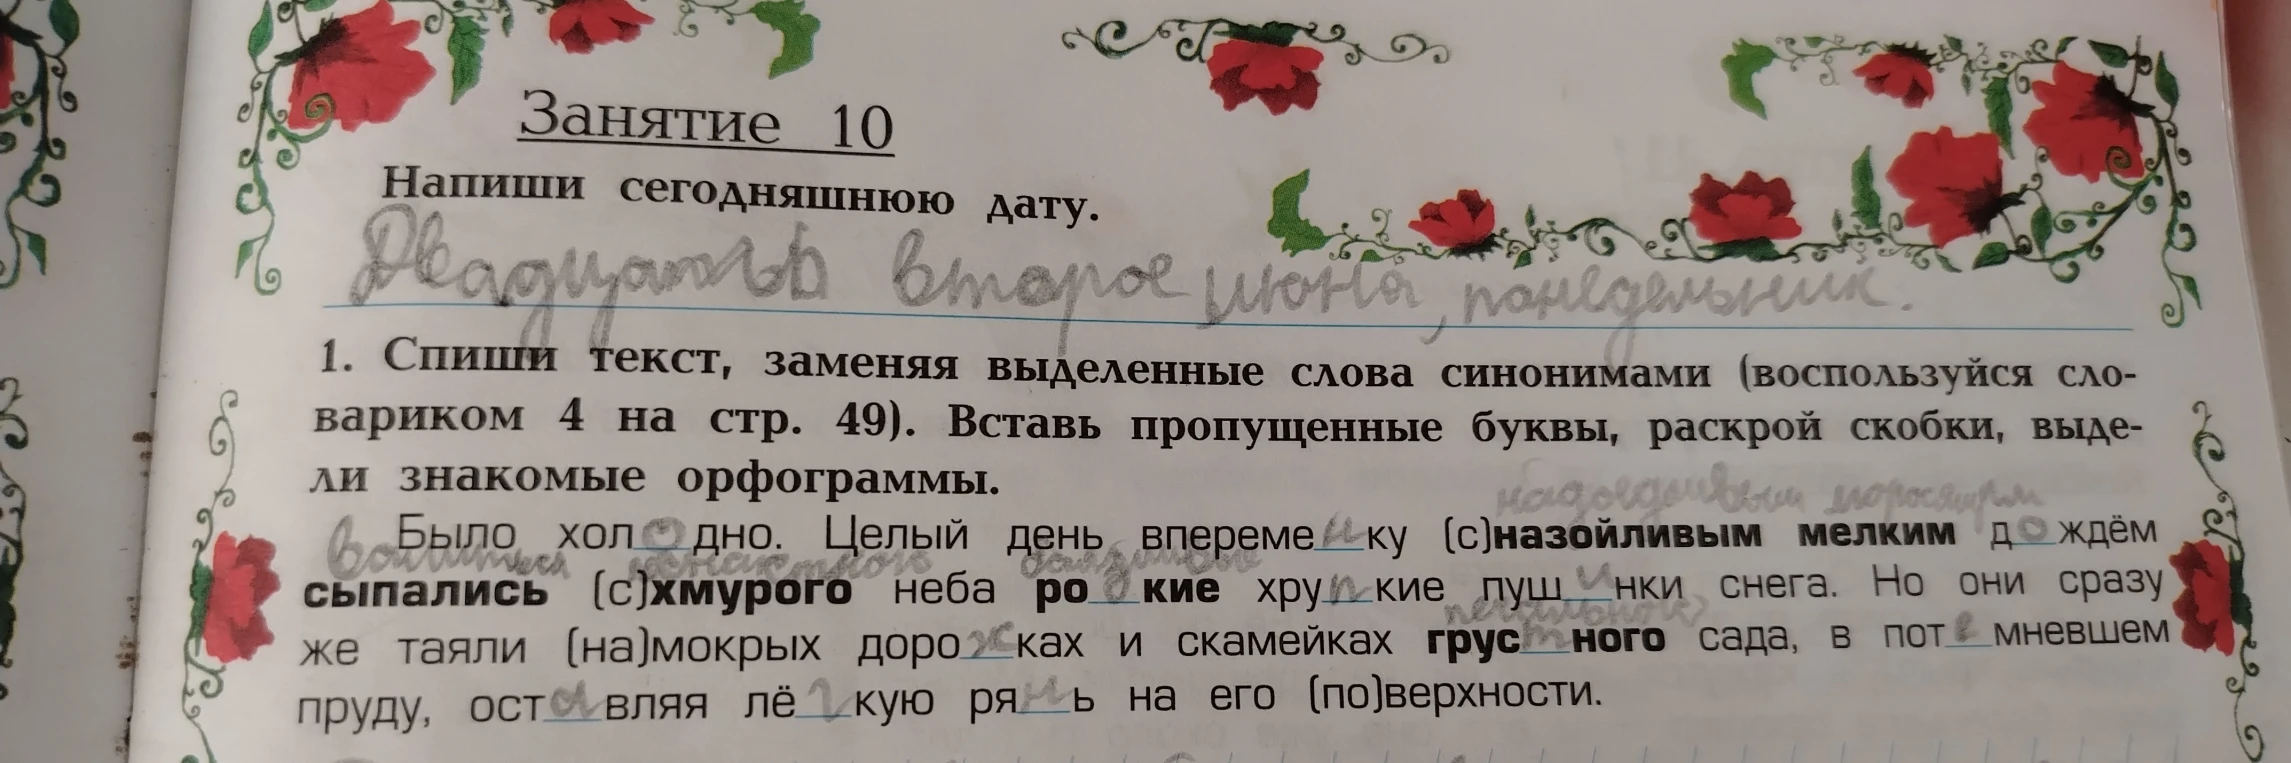 Занятие 10
Напиши сегодняшнюю дату.
Двадцать второе июня, понедельник.
1. Спиши текст, заменяя выделенные слова синонимами (воспользуйся сло-
вариком 4 на стр. 49). Вставь пропущенные буквы, раскрой скобки, выде-
ли знакомые орфограммы.
надоедливым моросящим
Было холодно. Целый день впеременку (с)назойливым мелким дождём
валились ненастного боязливые
сыпались (с)хмурого неба родкие хрупкие пушинки снега. Но они сразу
печального
же таяли (на)мокрых дорожках и скамейках грустного сада, в потемневшем
пруду, оставляя лёгкую рянь на его (по)верхности.